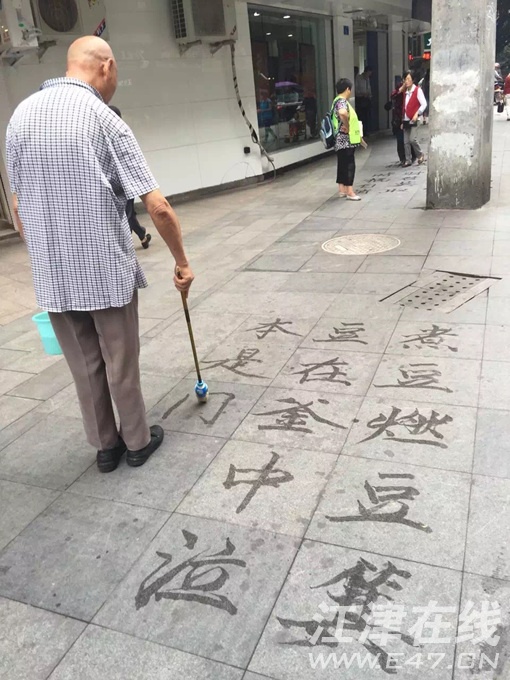 煮豆燃豆萁
豆在釜中泣
本是
江津在线
WWW.E47.CN